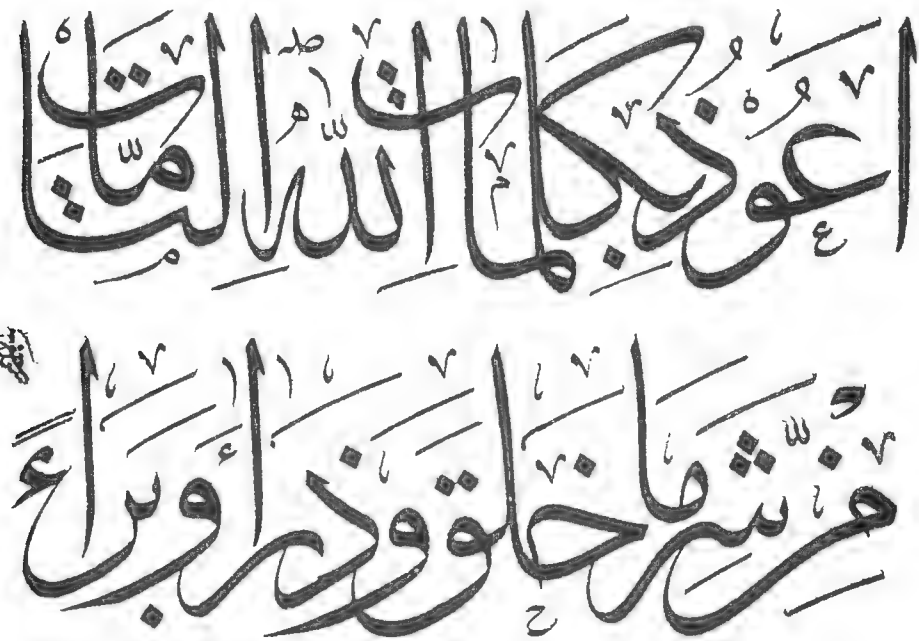 أَعُوذُ بِكَلِمَاتِ اللَّهِ التَّامَّاتِ
مِنْ شَرِّ مَا خَلَقَ وَذَرَأَ وَبَرَأَ